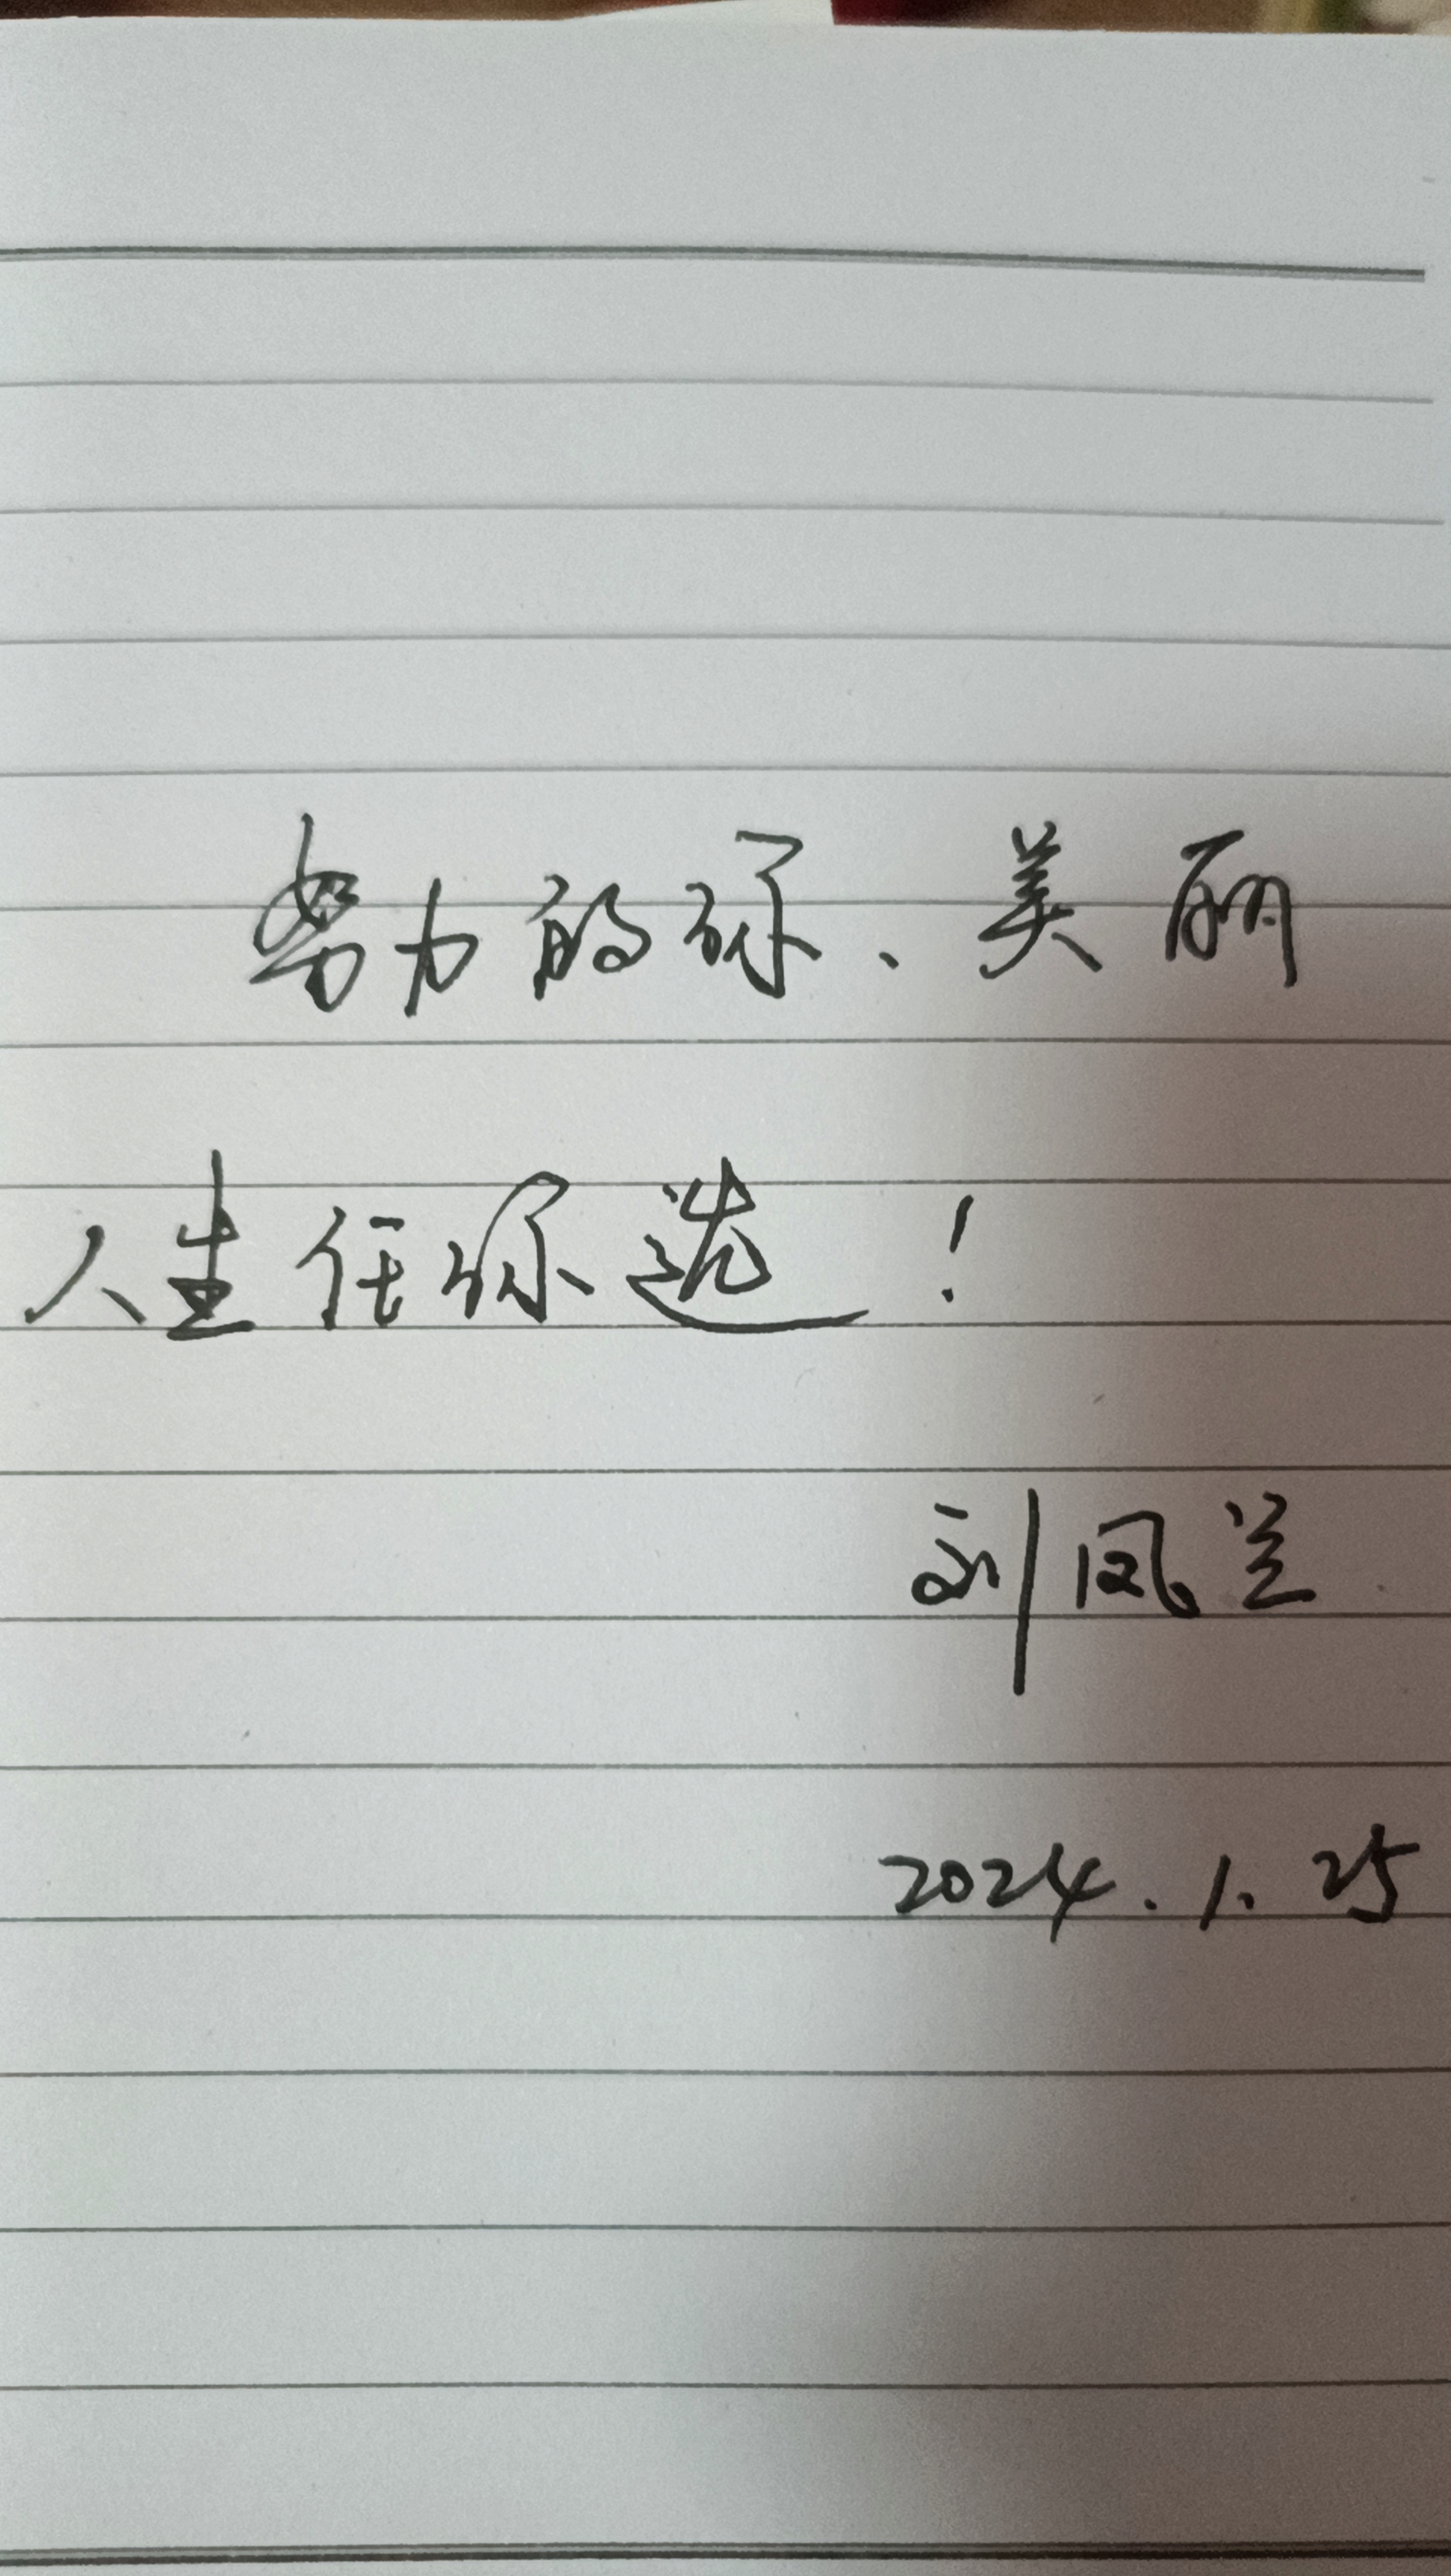 努力的你、美丽
人生任你选！
刘凤兰
2024.1.25